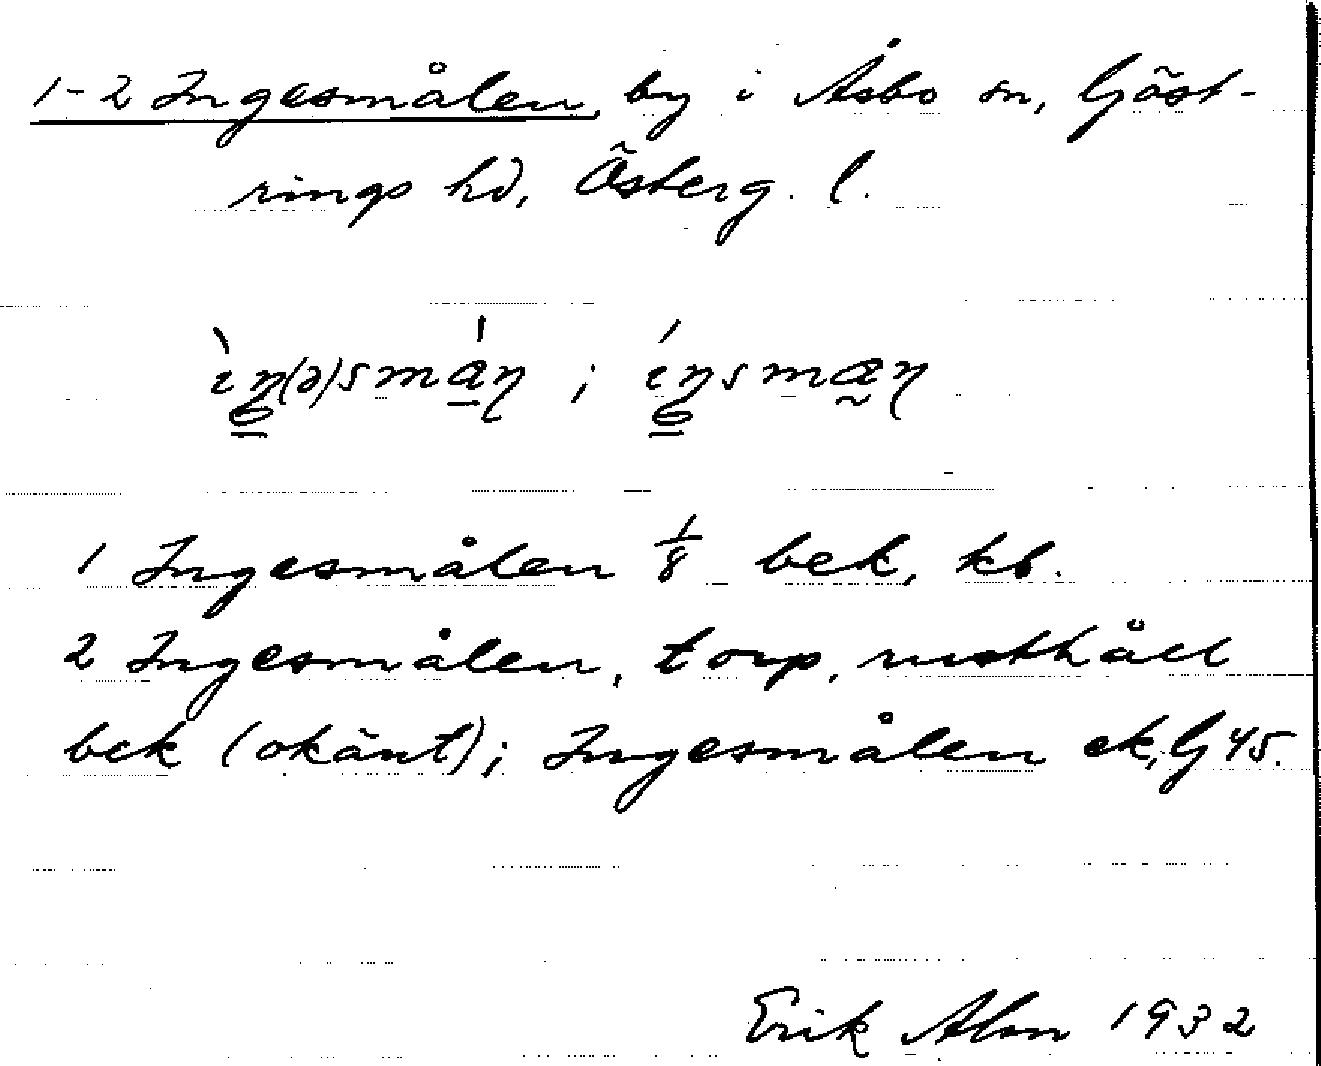 1-2 Ingesmålen, by i Åsbo sn, Göst-
rings hd, Österg. l.
1 Ingesmålen 1/8 bek, kb.
2 Ingesmålen, torp, rusthåll
bek (okänt); Ingesmålen ek, G 45.
Erik Abm 1932